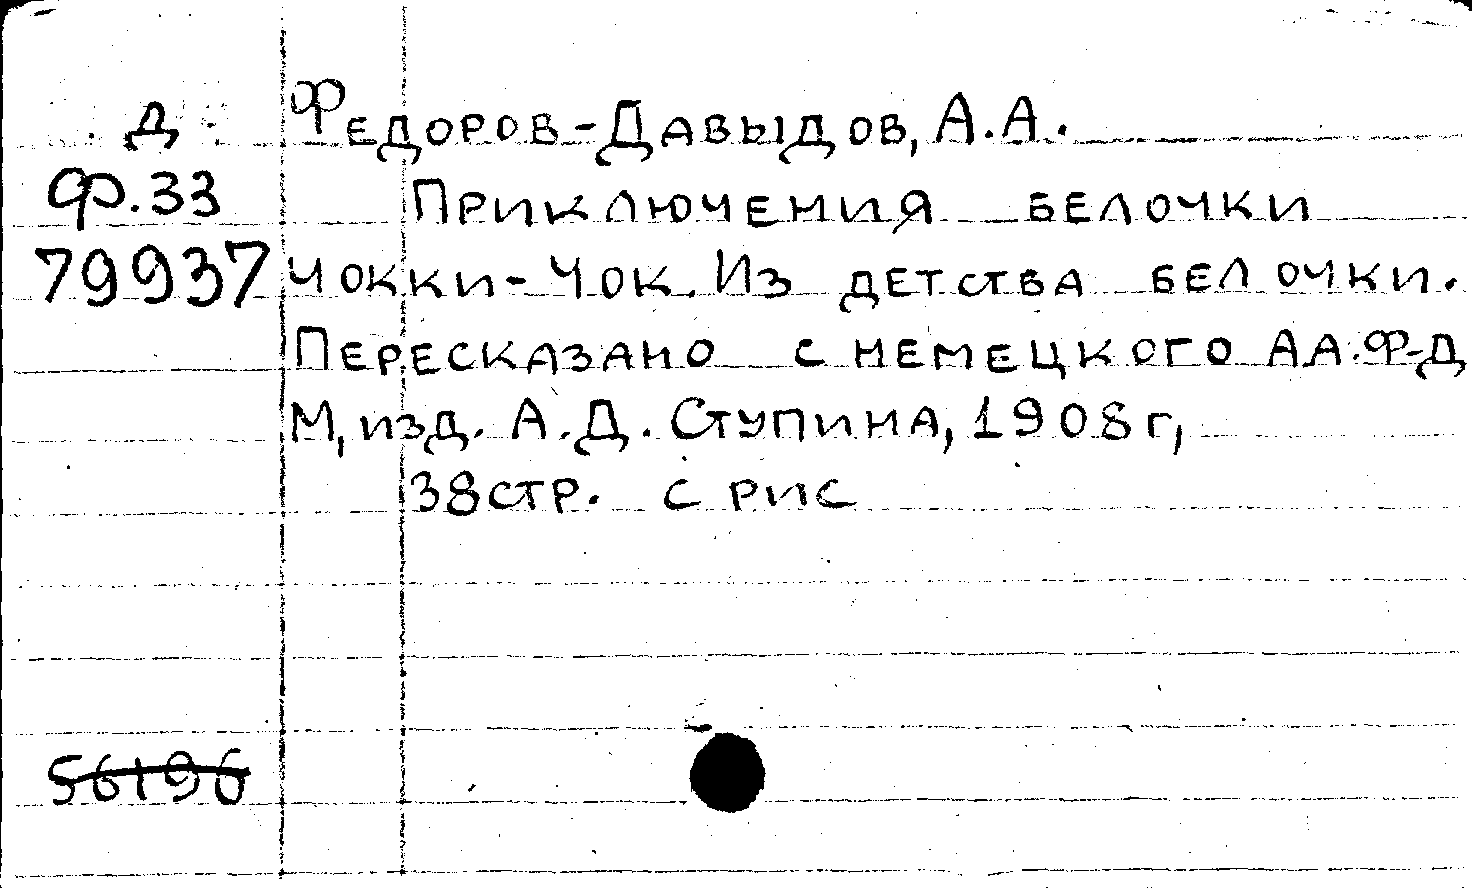 Д Федоров-Давыдов, А.А.
Ф.33 Приключения белочки
79937 Чокки-Чок. Из детства белочки.
Пересказано с немецкого А.А.Ф-Д
М, изд. А.Д. Ступина, 1908 г,
38 стр. с рис
56196